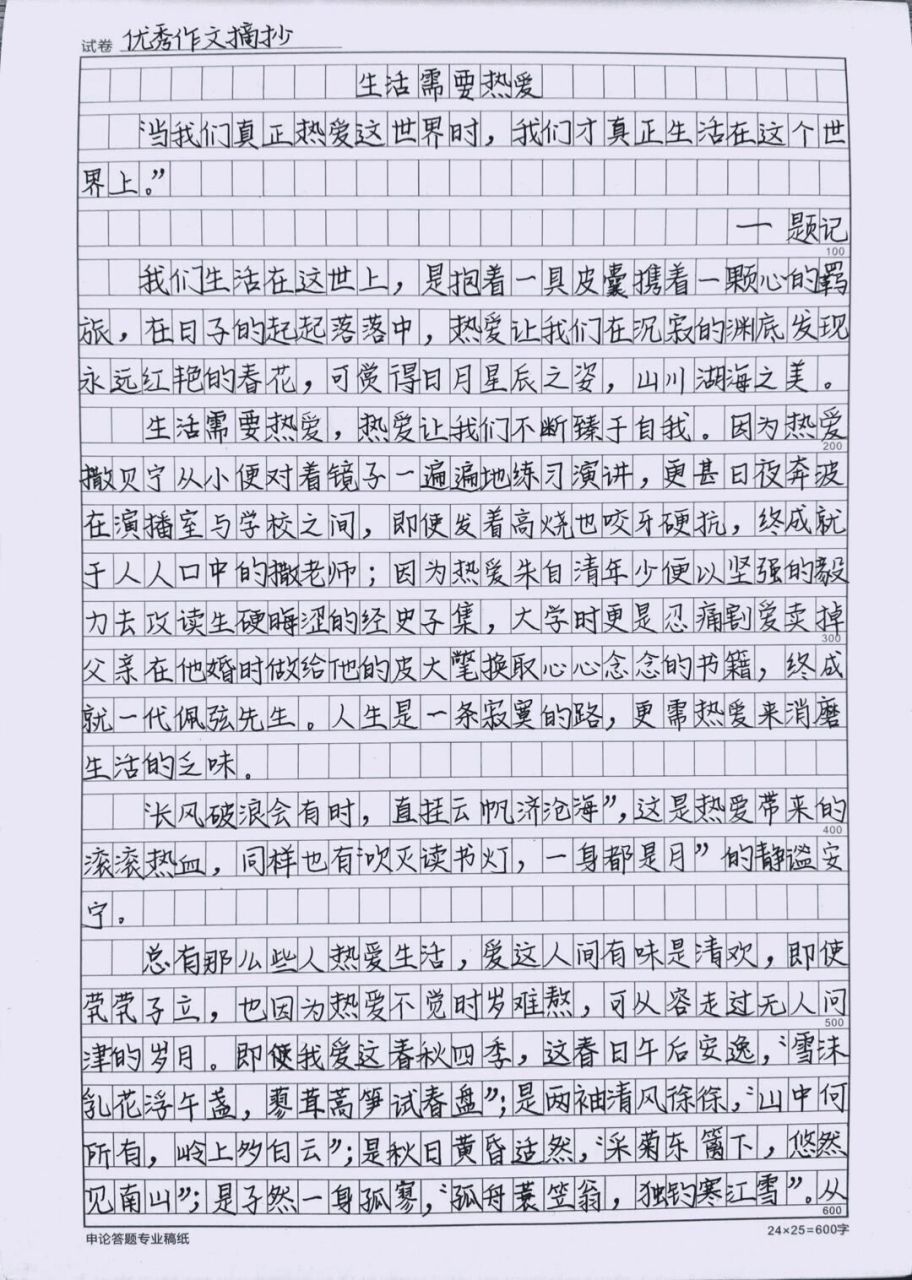 试卷 优秀作文摘抄
生活需要热爱
“当我们真正热爱这世界时，我们才真正生活在这个世
界上。”
— 题记
100
我们生活在这世上，是抱着一具皮囊携着一颗心的羁
旅，在日子的起起落落中，热爱让我们在沉寂的渊底发现
永远红艳的春花，可觉得日月星辰之姿，山川湖海之美。
生活需要热爱，热爱让我们不断臻于自我。因为热爱
200
撒贝宁从小便对着镜子一遍遍地练习演讲，更甚日夜奔波
在演播室与学校之间，即使发着高烧也咬牙硬抗，终成就
于人人口中的撒老师；因为热爱朱自清年少便以坚强的毅
力去攻读生硬晦涩的经史子集，大学时更是忍痛割爱卖掉
300
父亲在他婚时做给他的皮大氅换取心心念念的书籍，终成
就一代佩弦先生。人生是一条寂寞的路，更需热爱来消磨
生活的乏味。
“长风破浪会有时，直挂云帆济沧海”，这是热爱带来的
400
滚滚热血，同样也有“吹灭读书灯，一身都是月”的静谧安
宁。
总有那么些人热爱生活，爱这人间有味是清欢，即使
茕茕孑立，也因为热爱不觉时岁难熬，可从容走过无人问
500
津的岁月。即使我爱这春秋四季，这春日午后安逸，“雪沫
乳花浮午盏，蓼茸蒿笋试春盘”；是两袖清风徐徐，“山中何
所有，岭上多白云”；是秋日黄昏适然，“采菊东篱下，悠然
见南山”；是孑然一身孤寥，“孤舟蓑笠翁，独钓寒江雪”。从
600
申论答题专业稿纸
24×25=600字